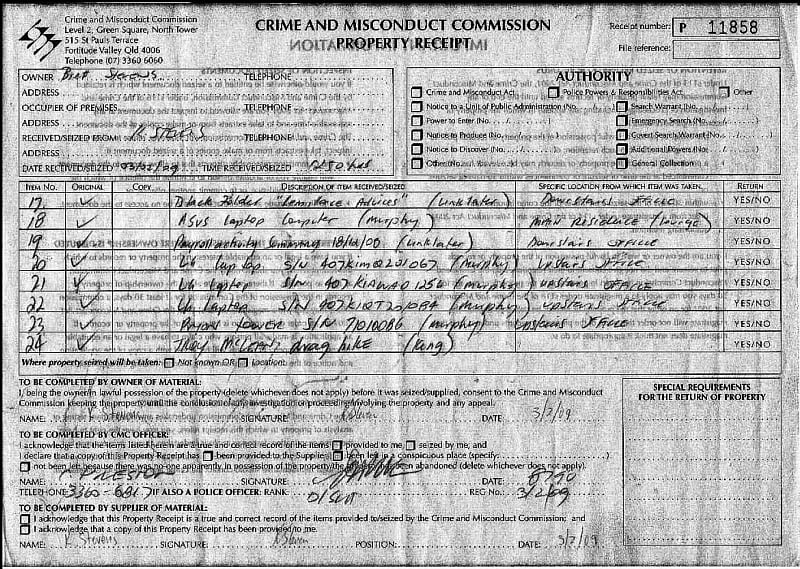 Crime and Misconduct Commission
Level 2, Green Square, North Tower
515 St Pauls Terrace
Fortitude Valley Qld 4006
Telephone (07) 3360 6060
CRIME AND MISCONDUCT COMMISSION
PROPERTY RECEIPT
Receipt number: P 11858
File reference:
OWNER Stevens TELEPHONE
ADDRESS
OCCUPIER OF PREMISES TELEPHONE
ADDRESS
RECEIVED/SEIZED FROM K STEVENS TELEPHONE
ADDRESS
DATE RECEIVED/SEIZED 03/02/09 TIME RECEIVED/SEIZED 1250 hrs
AUTHORITY
Crime and Misconduct Act Police Powers & Responsibilities Act Other
Notice to a Unit of Public Administration (No. Search Warrant (No.
Power to Enter (No. Emergency Search (No.
Notice to Produce (No. Covert Search Warrant (No.
Notice to Discover (No. Additional Powers (No.
Other (No. General Collection
ITEM NO. ORIGINAL COPY DESCRIPTION OF ITEM RECEIVED/SEIZED SPECIFIC LOCATION FROM WHICH ITEM WAS TAKEN RETURN
17 ✓ Black Folder "Compliance Advices" (Linklater) Downstairs office YES/NO
18 ✓ ASUS Laptop Computer (Murphy) Main Residence (lounge) YES/NO
19 ✓ Payroll activity Summary 18/12/00 (Linklater) Downstairs office YES/NO
20 ✓ LG laptop S/N 407KIMQ201067 (Murphy) Upstairs office YES/NO
21 ✓ LG Laptop S/N (Murphy) Upstairs office YES/NO
22 ✓ LG Laptop S/N (Murphy) Upstairs office YES/NO
23 ✓ S/N 71010086 (Murphy) Upstairs office YES/NO
24 ✓ Troy drag bike (King) YES/NO
Where property seized will be taken: Not known OR Location:
TO BE COMPLETED BY OWNER OF MATERIAL:
I, being the owner/in lawful possession of the property (delete whichever does not apply) before it was seized/supplied, consent to the Crime and Misconduct
Commission keeping the property until the conclusion of any investigation or proceeding involving the property and any appeal.
NAME: K Stevens SIGNATURE: DATE 3/2/09
SPECIAL REQUIREMENTS
FOR THE RETURN OF PROPERTY
TO BE COMPLETED BY CMC OFFICER:
I acknowledge that the items listed herein are a true and correct record of the items provided to me, seized by me, and
I declare that a copy of this Property Receipt has been provided to the Supplier been left in a conspicuous place (specify
not been left because there was no-one apparently in possession of the property/the property had been abandoned (delete whichever does not apply).
NAME: PRESTON SIGNATURE: DATE:
TELEPHONE 3360-6317 IF ALSO A POLICE OFFICER: RANK: D/Sgt REG NO.
3/2/09
TO BE COMPLETED BY SUPPLIER OF MATERIAL:
I acknowledge that this Property Receipt is a true and correct record of the items provided to/seized by the Crime and Misconduct Commission; and
I acknowledge that a copy of this Property Receipt has been provided to me.
NAME: K Stevens SIGNATURE: POSITION: DATE: 3/2/09